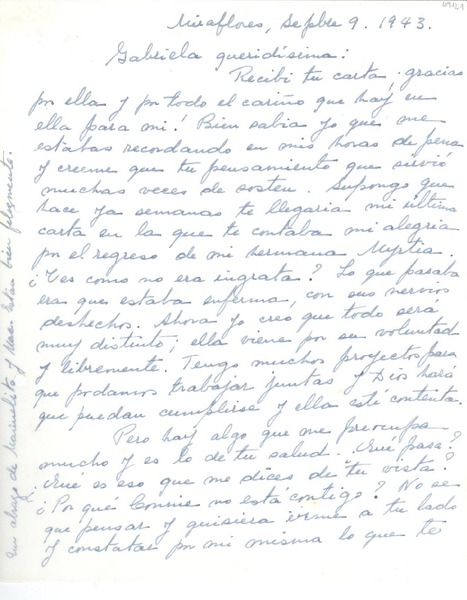 Miraflores, Sepbre 9. 1943.
Gabriela queridísima:
Recibí tu carta, gracias
por ella y por todo el cariño que hay en
ella para mi! Bien sabia yo que me
estabas recordando en mis horas de pena
y creeme que tu pensamiento que sirvió
muchas veces de sosten. Supongo que
hace ya semanas te llegaria mi última
carta en la que te contaba mi alegria
por el regreso de mi hermana Myrtia.
¿Ves como no era ingrata? Lo que pasaba
era que estaba enferma, con sus nervios
deshechos. Ahora yo creo que todo sera
muy distinto; ella viene por su voluntad
y libremente. Tengo muchos proyectos para
que podamos trabajar juntas y Dios hará
que puedan cumplirse y ella esté contenta.
Pero hay algo que me preocupa
mucho y es lo de tu salud. ¿Que pasa?
¿Que es eso que me dices de tu vista?
¿Por qué Connie no está contigo? No se
que pensar y quisiera irme a tu lado
y constatar por mi misma lo que te
un abrazo de Manuelito y están bien felizmente.